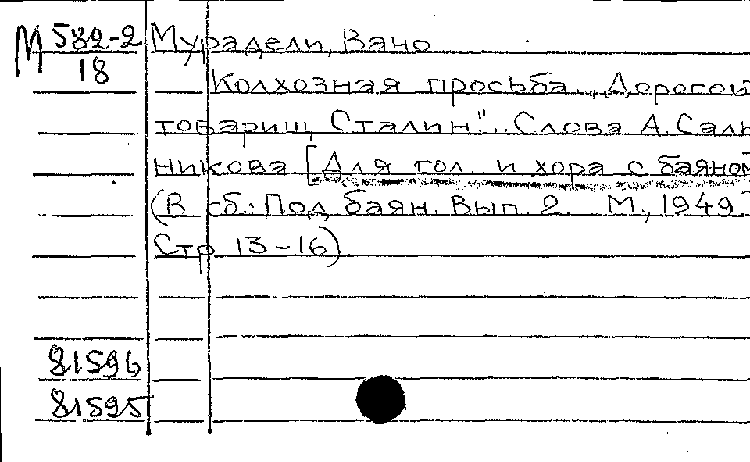 М 582-2
18
Мурадели, Вано
Колхозная просьба „Дорогой
товарищ Сталин". Слова А. Саль
никова [Для гол и хора с баяном
(В сб.: Под баян. Вып. 2. М., 1949.
Стр. 13-16)
81596
81595